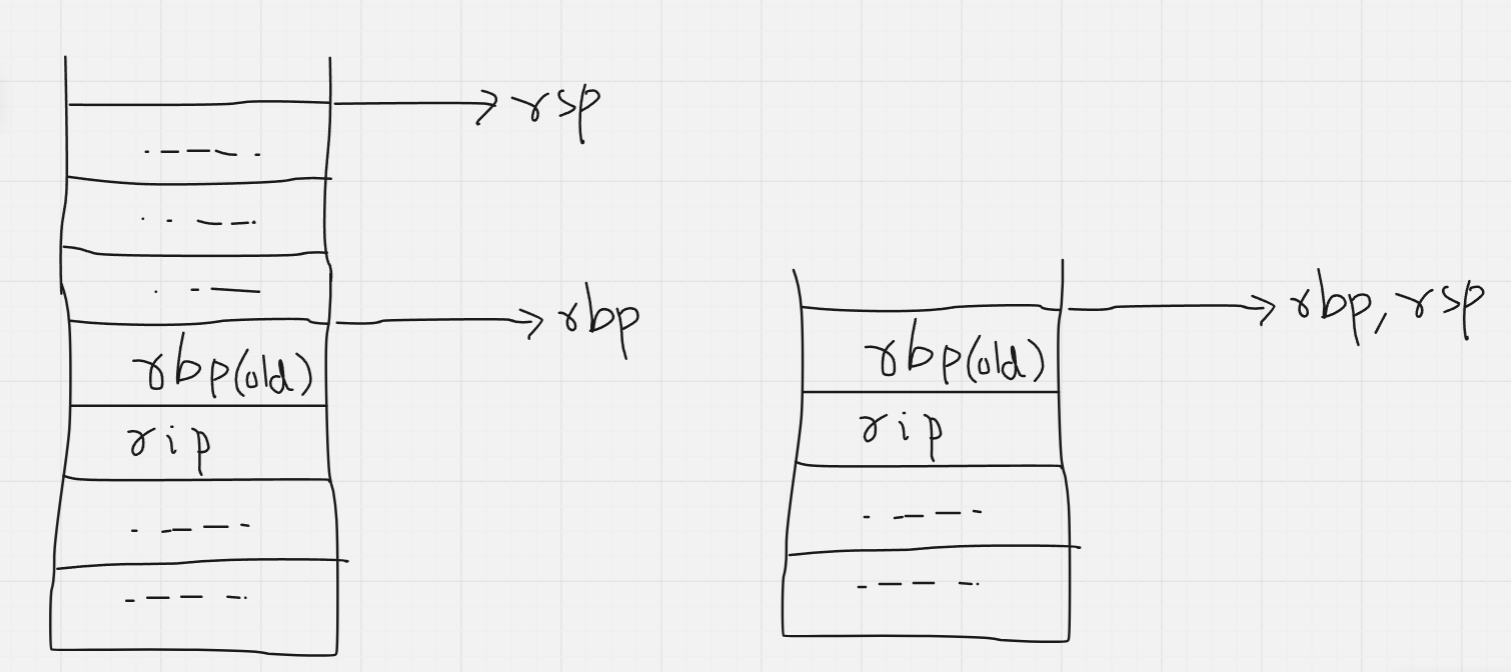 rsp
rbp
rbp(old)
rip
rbp, rsp
rbp(old)
rip